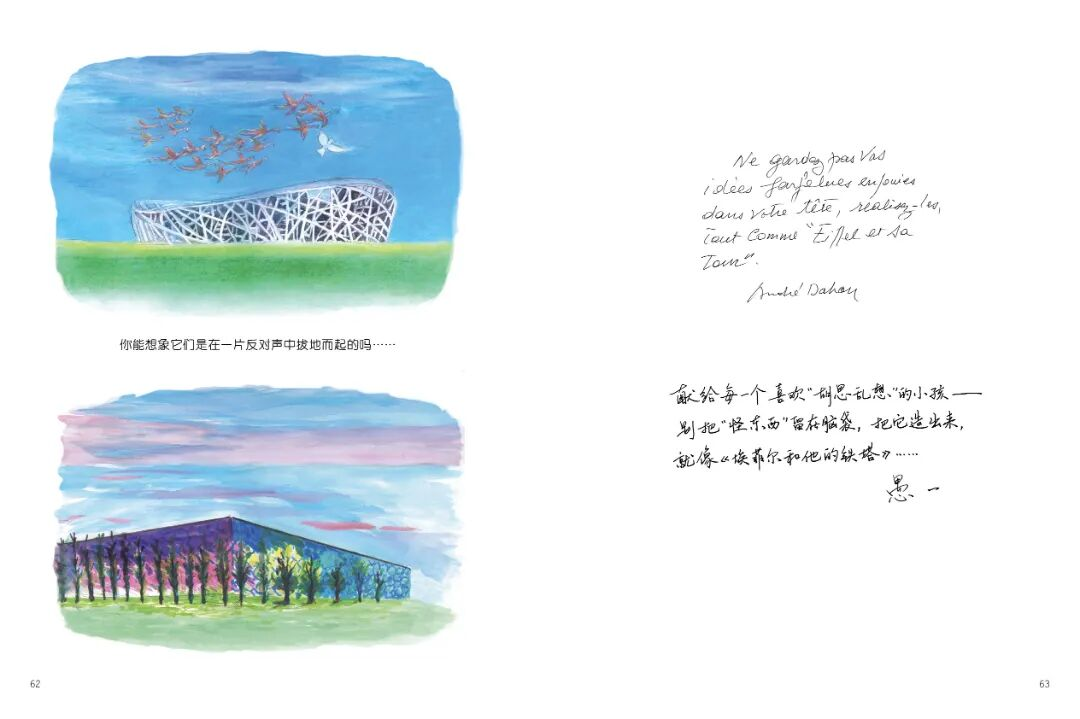 你能想象它们是在一片反对声中拔地而起的吗……
62
Ne gardez pas vos
idées farfelues enfouies
dans votre tête, réalisez-les,
Tout comme "Eiffel et sa
Tour".
André Dahan
献给每一个喜欢“胡思乱想”的小孩——
别把“怪东西”留在脑袋，把它造出来，
就像《埃菲尔和他的铁塔》……
愚一
63